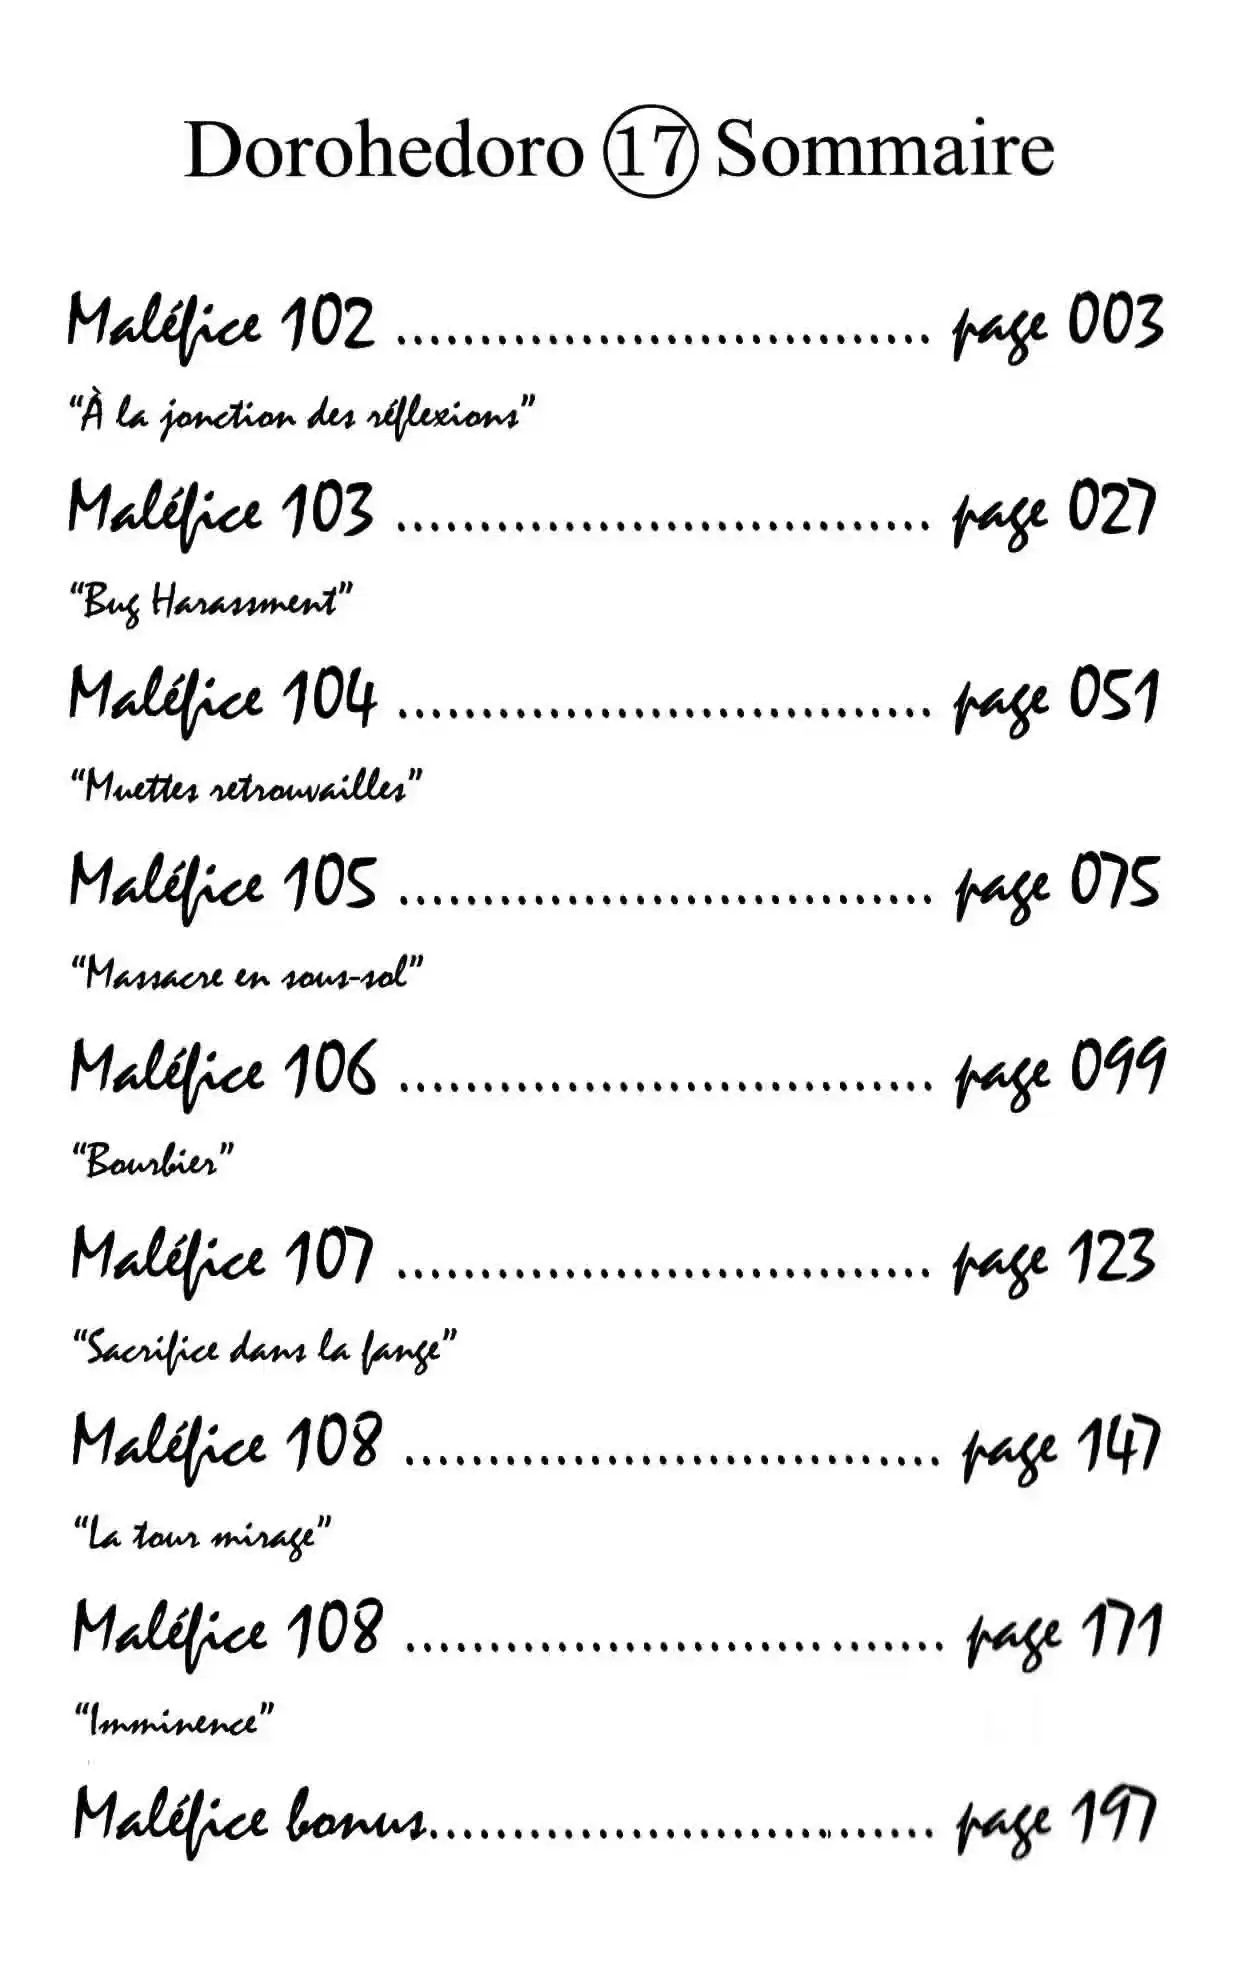 Dorohedoro ⑰ Sommaire
Maléfice 102 ................................ page 003
“À la jonction des réflexions”
Maléfice 103 ................................ page 027
“Bug Harassment”
Maléfice 104 ................................ page 051
“Muettes retrouvailles”
Maléfice 105 ................................ page 075
“Massacre en sous-sol”
Maléfice 106 ................................ page 099
“Bourbier”
Maléfice 107 ................................ page 123
“Sacrifice dans la fange”
Maléfice 108 ................................ page 147
“La tour mirage”
Maléfice 108 ................................ page 171
“Imminence”
Maléfice bonus.............................. page 197